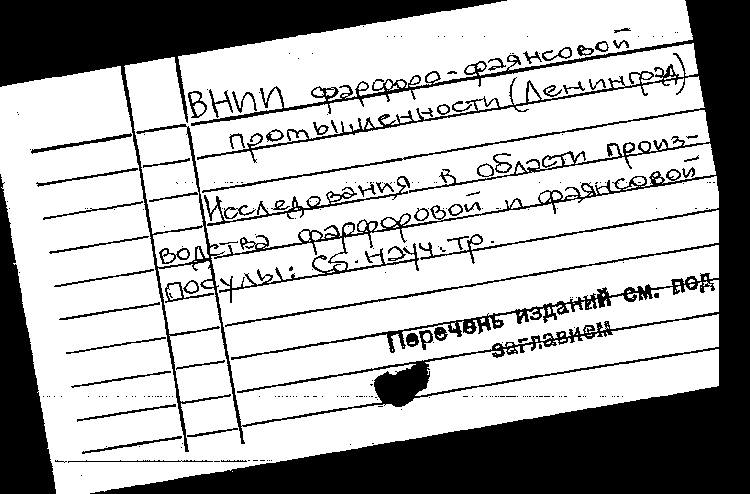 ВНИИ фарфоро-фаянсовой
промышленности (Ленинград)
Исследования в области произ-
водства фарфоровой и фаянсовой
посуды: Сб. науч. тр.
Перечень изданий см. под
заглавием